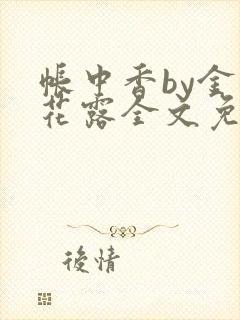 帳中香by金
花露全文免
後情